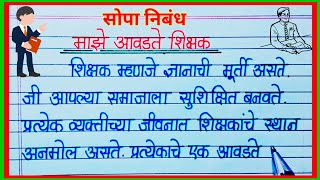 सोपा निबंध
माझे आवडते शिक्षक
शिक्षक म्हणजे ज्ञानाची मूर्ती असते.
जी आपल्या समाजाला सुशिक्षित बनवते.
प्रत्येक व्यक्तीच्या जीवनात शिक्षकांचे स्थान
अनमोल असते. प्रत्येकाचे एक आवडते